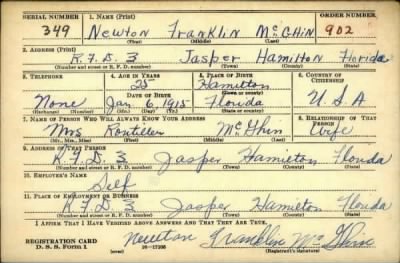 SERIAL NUMBER 1. NAME (Print) ORDER NUMBER
349 Newton Franklin McGhin 902
(First) (Middle) (Last)
2. ADDRESS (Print)
R.F.D. 3 Jasper Hamilton Florida
(Number and street or R. F. D. number) (Town) (County) (State)
3. TELEPHONE 4. AGE IN YEARS 5. PLACE OF BIRTH 6. COUNTRY OF CITIZENSHIP
25 Hamilton
DATE OF BIRTH
None Jan 6, 1915 Florida U.S.A
(Exchange) (Number) (Mo.) (Day) (Yr.) (State or country)
7. NAME OF PERSON WHO WILL ALWAYS KNOW YOUR ADDRESS 8. RELATIONSHIP OF THAT PERSON
Mrs McGhin Wife
(Mr., Mrs., Miss) (First) (Middle) (Last)
9. ADDRESS OF THAT PERSON
R.F.D. 3 Jasper Hamilton Florida
(Number and street or R. F. D. number) (Town) (County) (State)
10. EMPLOYER'S NAME
Self
11. PLACE OF EMPLOYMENT OR BUSINESS
R.F.D. 3 Jasper Hamilton Florida
(Number and street or R. F. D. number) (Town) (County) (State)
I AFFIRM THAT I HAVE VERIFIED ABOVE ANSWERS AND THAT THEY ARE TRUE.
REGISTRATION CARD
D. S. S. Form 1 16-17105 Newton Franklin McGhin
(Registrant's signature)